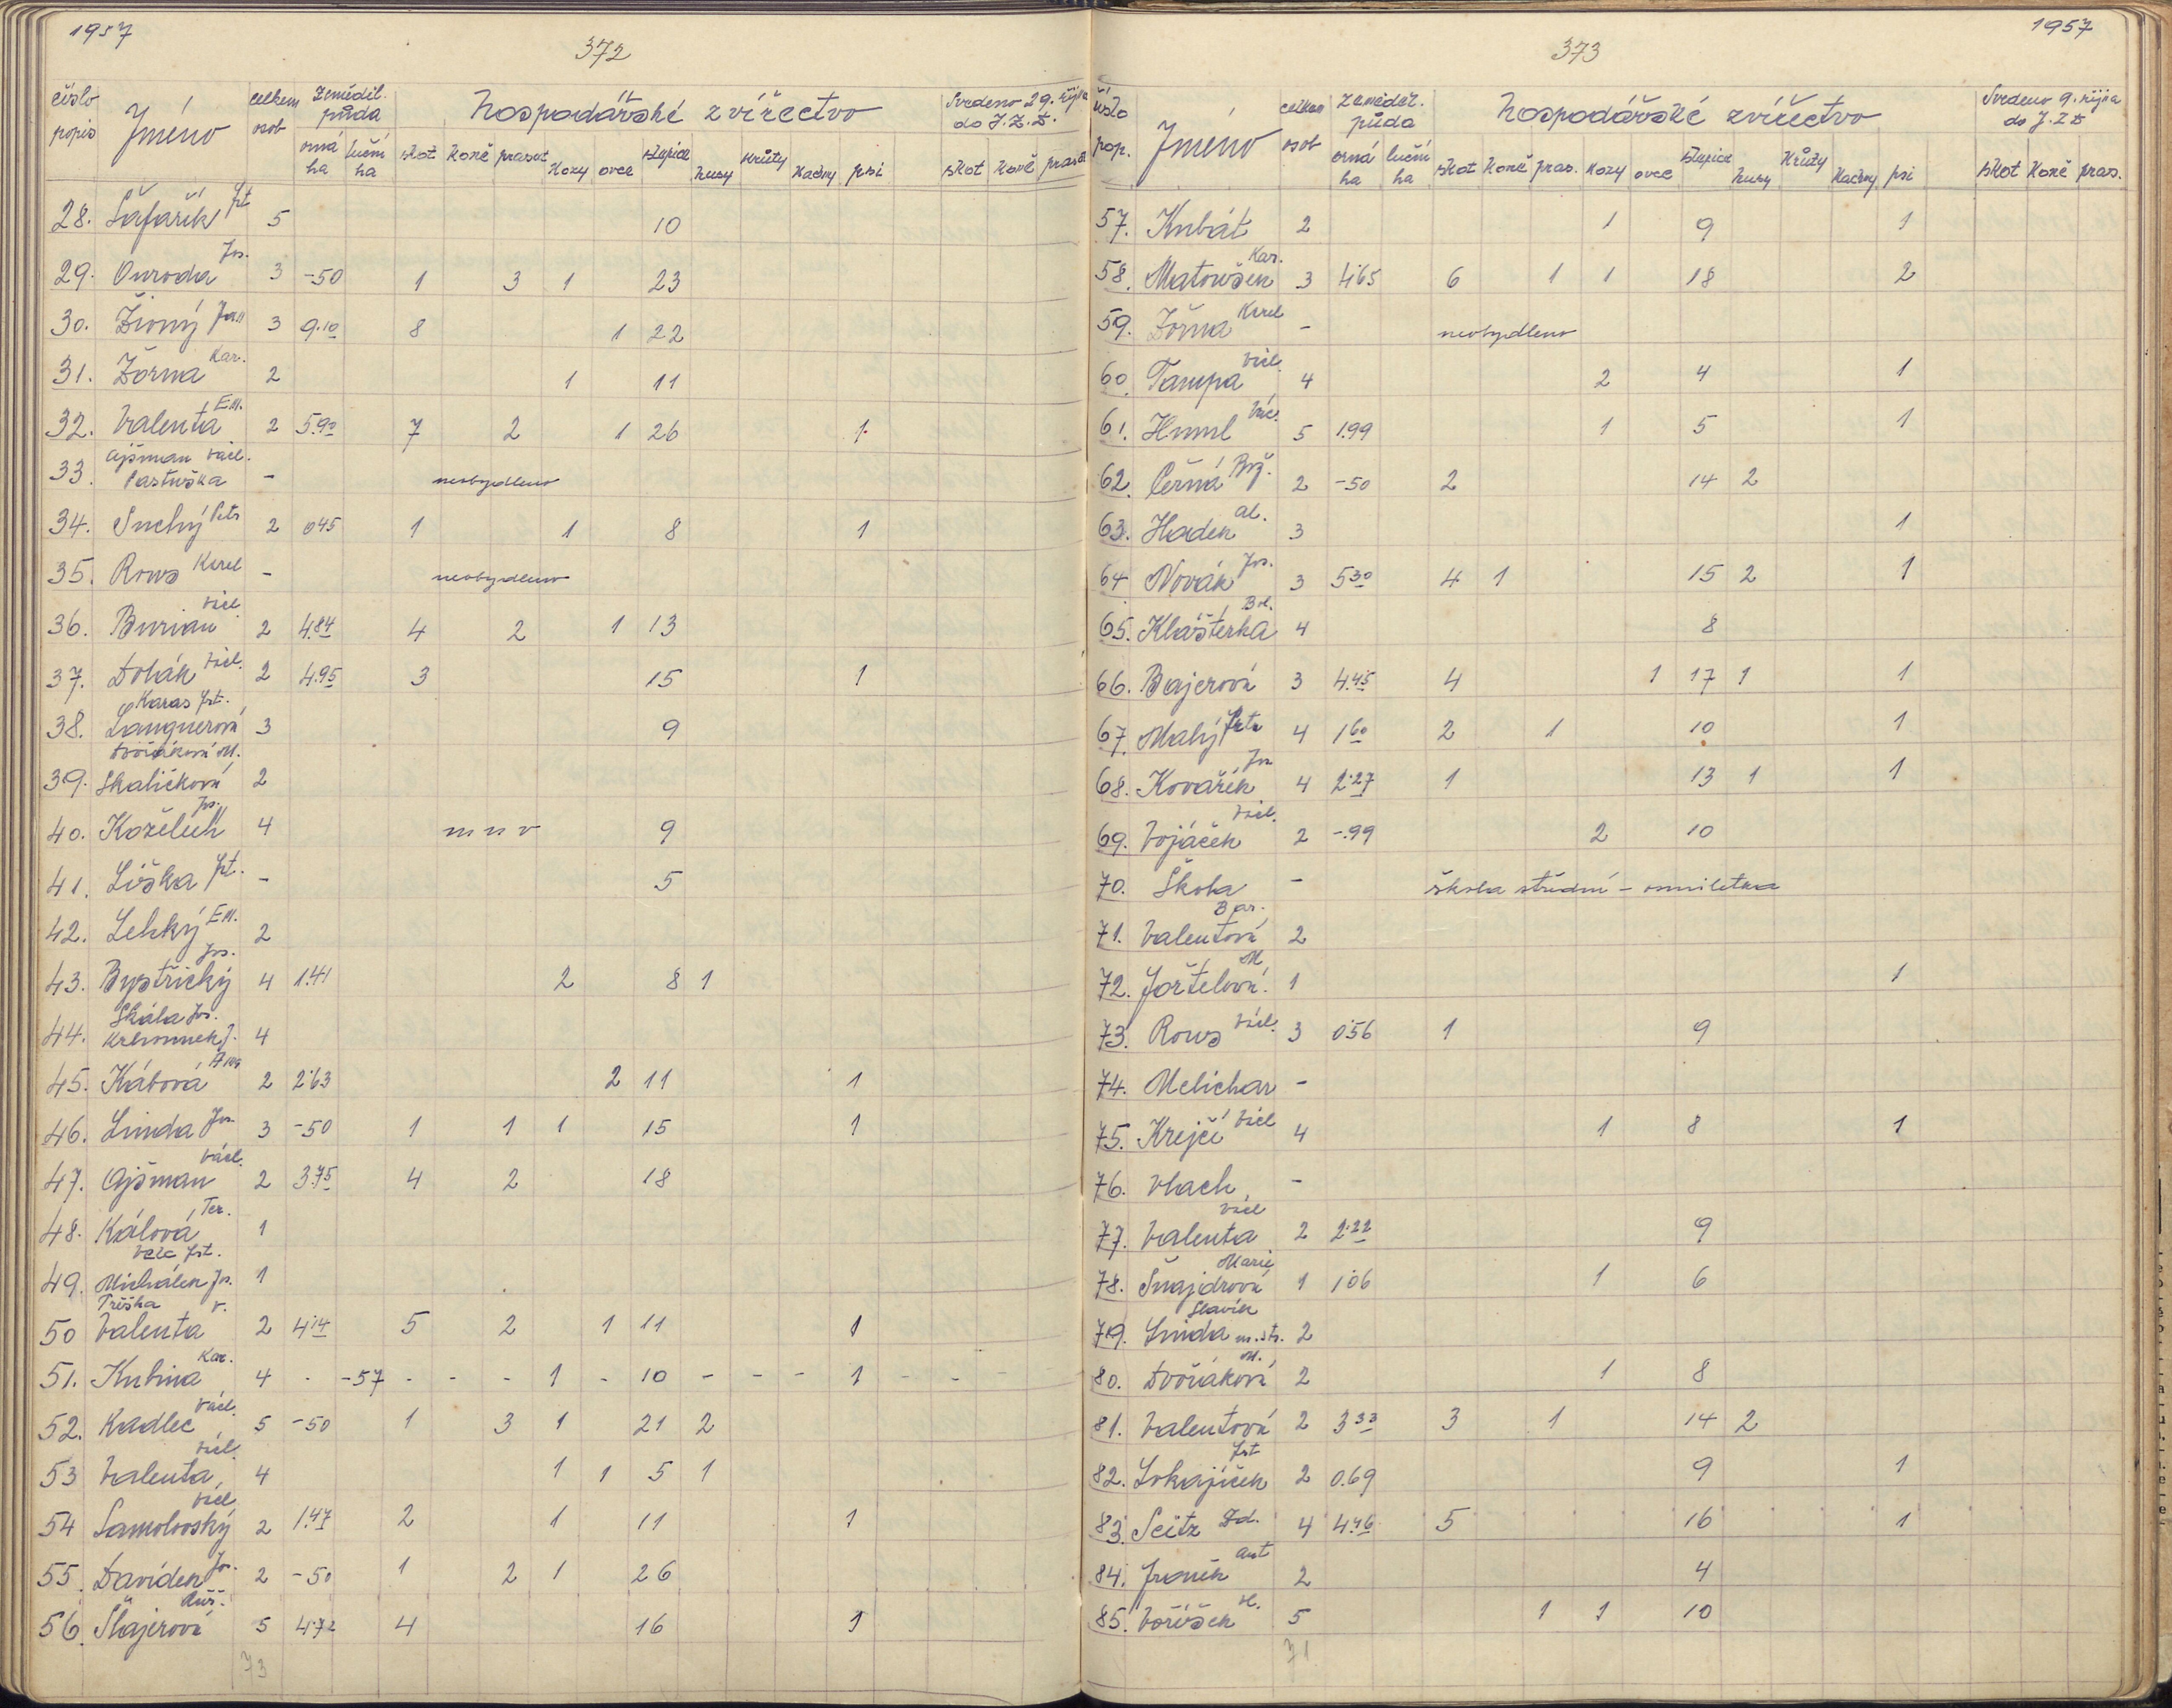 1957
372
číslo popis Jméno celkem osob Zeměděl. půda Hospodářské zvířectvo Svedeno 29. října do J.Z.D.
orná ha luční ha skot koně prasat kozy ovce slepice husy krůty kachny psi skot koně prasat
28. Šafařík Frt 5 10
29. Ouroda Jos. 3 -50 1 3 1 23
30. Živný Jan 3 9.10 8 1 22
31. Žorna Kar. 2 1 11
32. Valenta Em. 2 5.90 7 2 1 26 1
33. Ajšman Václ. Pastuška - neobydleno
34. Suchý Petr 2 045 1 1 8 1
35. Rous Karel - neobydleno
36. Burian Václ. 2 4.84 4 2 1 13
37. Dolák Václ. 2 4.95 3 15 1
Karas Frt.
38. Langnerová 3 9
Dvořáková M.
39. Skaličková 2
40. Koželuh Jos. 4 m n v 9
41. Liška Frt. - 5
42. Lehký Em. 2
43. Bystřický Jos. 4 1.41 2 8 1
Skála Jos.
44. 4
45. Kábová Ana 2 2.63 2 11 1
46. Linda Jos. 3 -50 1 1 1 15 1
47. Ajšman Václ. 2 3.75 4 2 18
48. Králová Ter. 1
Frt.
49. Michálek Jos. 1
Triška v.
50 Valenta 2 4.14 5 2 1 11 1
51. Kubina Kar. 4 - -57 - - - 1 - 10 - - - 1 - -
52. Kadlec Václ. 5 -50 1 3 1 21 2
53 Valenta Václ. 4 1 1 5 1
54 Samolovský Václ. 2 1.47 2 1 11 1
55. Davídek Jos. 2 -50 1 2 1 26
56. Šlajerová Růž. 5 4.72 4 16 1
73
1957
373
číslo pop. Jméno celkem osob Zeměděl. půda Hospodářské zvířectvo Svedeno 9. října do J.Z.D
orná ha luční ha skot koně pras. kozy ovce slepice husy Krůty kachny psi skot koně pras.
57. Kubát 2 1 9 1
58. Matoušek Kar. 3 4.65 6 1 1 18 2
59. Žorna Karel - neobydleno
60. Tampa Václ. 4 2 4 1
61. Huml Vác. 5 1.99 1 5 1
62. Černá Bož. 2 -50 2 14 2
63. Hadek al. 3 1
64 Novák Jos. 3 5.30 4 1 15 2 1
65. Klášterka Bol. 4 8
66. Bajerová 3 4.45 4 1 17 1 1
67. Malý Petr 4 1.60 2 1 10 1
68. Kovařík Jos 4 2.27 1 13 1 1
69. Vojáček Václ. 2 -.99 2 10
70. Škola - škola střední - osmiletka
71. Valentová Bar. 2
72. Jořtelová M. 1 1
73. Rous Václ. 3 0.56 1 9
74. Melichar -
75. Krejčí Václ 4 1 8 1
76. Vlach -
77. Valenta Václ 2 2.22 9
78. Šnajdrová Marie 1 1.06 1 6
Slavík
79. Linda m.st. 2
80. Dvořáková M. 2 1 8
81. Valentová 2 3.33 3 1 14 2
82. Lokajíček Frt 2 0.69 9 1
83. Seitz Ed. 4 4.46 5 16 1
84. Froněk Ant 2 4
85. Voříšek 5 1 1 10
71